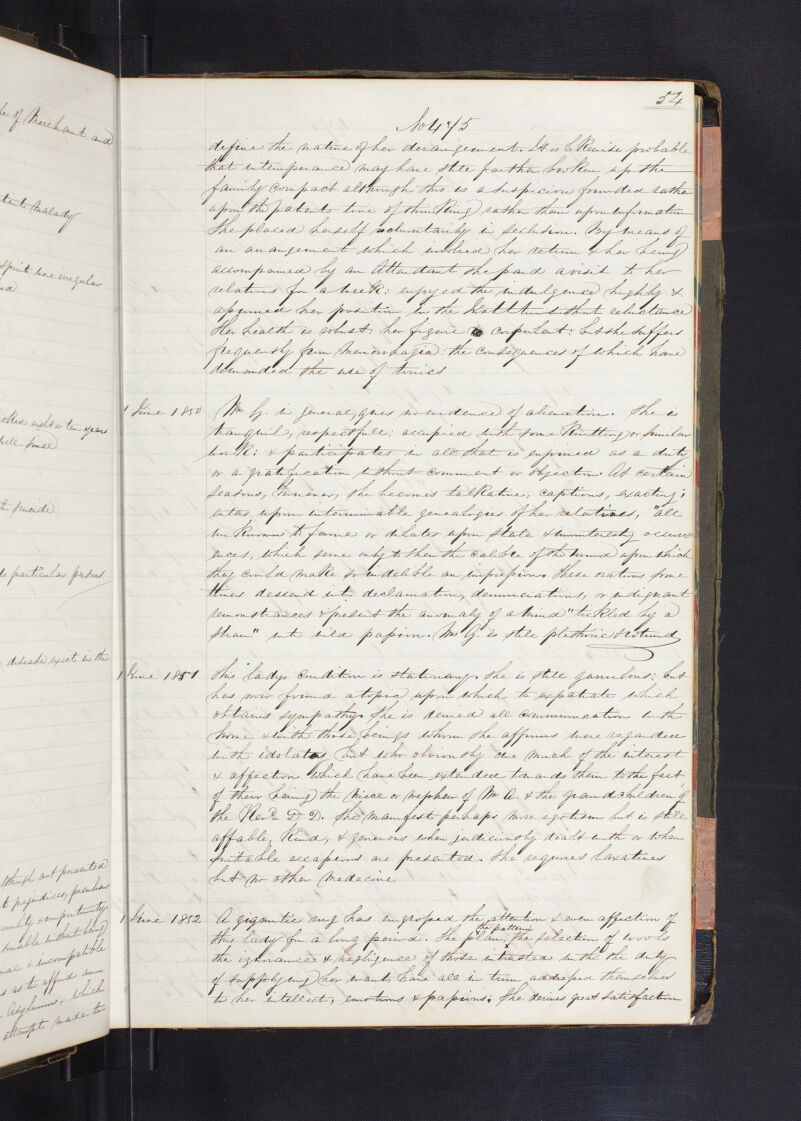 he of Merchant and
Malady
Spirits were irregular
ed
eight or ten years
since
suicide
to particular persons
disease exist in the
Although not presented
to prejudices, peculiar
without being
& incompatible
as to afford an
Asylums, which
attempt made to
54
No 475
define the nature of her derangement. It is likewise probable
that intemperance may have still farther broken up the
family compact although this is a suspicion founded rather
upon the patients tone of thinking rather than upon information
She placed herself voluntarily in seclusion. By means of
an arrangement which involved her return & her being
accompanied by an Attendant she paid a visit to her
relations for a week: enjoyed the indulgence highly &
assumed her position in the Institution without reluctance
Her health is robust; her figure is corpulent: but she suffers
frequently from Menorrhagia: the consequences of which have
demanded the use of tonics
1 June 1850
Ms G. in general, gives no evidence of alienation. She is
tranquil, respectful: occupied with some Knitting or similar
work: & participates in all that is enjoined as a duty
or a gratification without comment or objection. At certain
seasons, however, she becomes talkative, captious, exacting;
enters upon interminable genealogies of her relatives, "all
unknown to fame" or dilates upon stale & uninteresting occurr-
ences, which serve only to shew the calibre of the mind upon which
they could make so indelible an impression. These orations some
times descend into declamation, denunciations, or indignant
remonstrances & present the anomaly of a mind "tickled by a
straw" into wild passion. Ms G. is still plethoric & rotund
1 June 1851
This ladys condition is stationary. She is still garrulous; but
has now found a topic upon which to expatiate which
obtains sympathy. She is denied all communication with
home & with those beings whom she affirms were regarded
with idolatry but who obviously owe much of the interest
& affection which have been extended towards them to the fact
of their being "the niece or nephew of Mr A. & the grandchildren of
the Revd Dr D. She manifests perhaps more egotism but is still
affable, kind, & generous when judiciously dealt with or when
suitable occasions are presented. She requires laxatives
but no other medicine
1 June 1852
A gigantic rug has engrossed the attention & even affection of
this lady for a long period. The plan, the pattern, the selection of wools
the ignorance & negligence of those intrusted with the duty
of supplying her wants have all in turn addressed themselves
to her intellect, emotions & passions. She derives great satisfaction